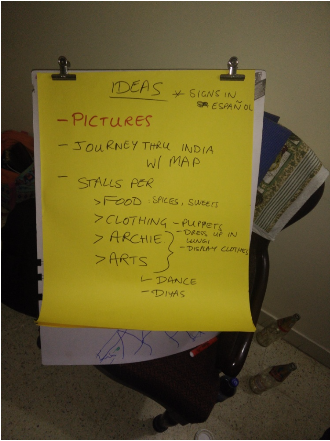 IDEAS
* SIGNS IN
ESPAÑOL
- PICTURES
- JOURNEY THRU INDIA
W/ MAP
- STALLS PER
> FOOD - SALES, SWEETS
> CLOTHING - PUPPETS
> ARCHIE - DRESS UP IN
LUNGI
- DISPLAY CLOTHES
> ARTS
- DANCE
- DIYAS